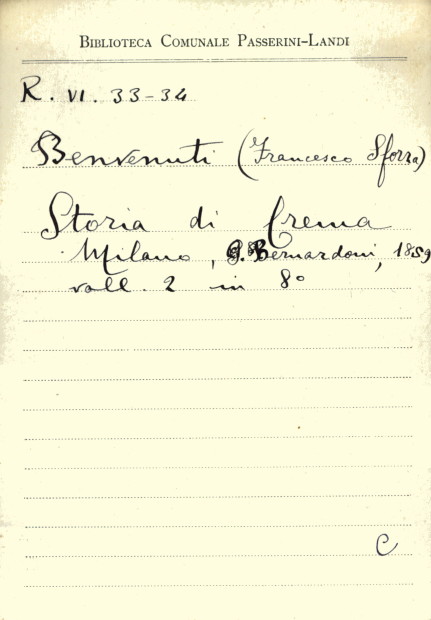 BIBLIOTECA COMUNALE PASSERINI-LANDI
R. VI. 33-34
Benvenuti (Francesco Sforza)
Storia di Crema
Milano, G. Bernardoni, 1859
voll. 2 in 8°
C